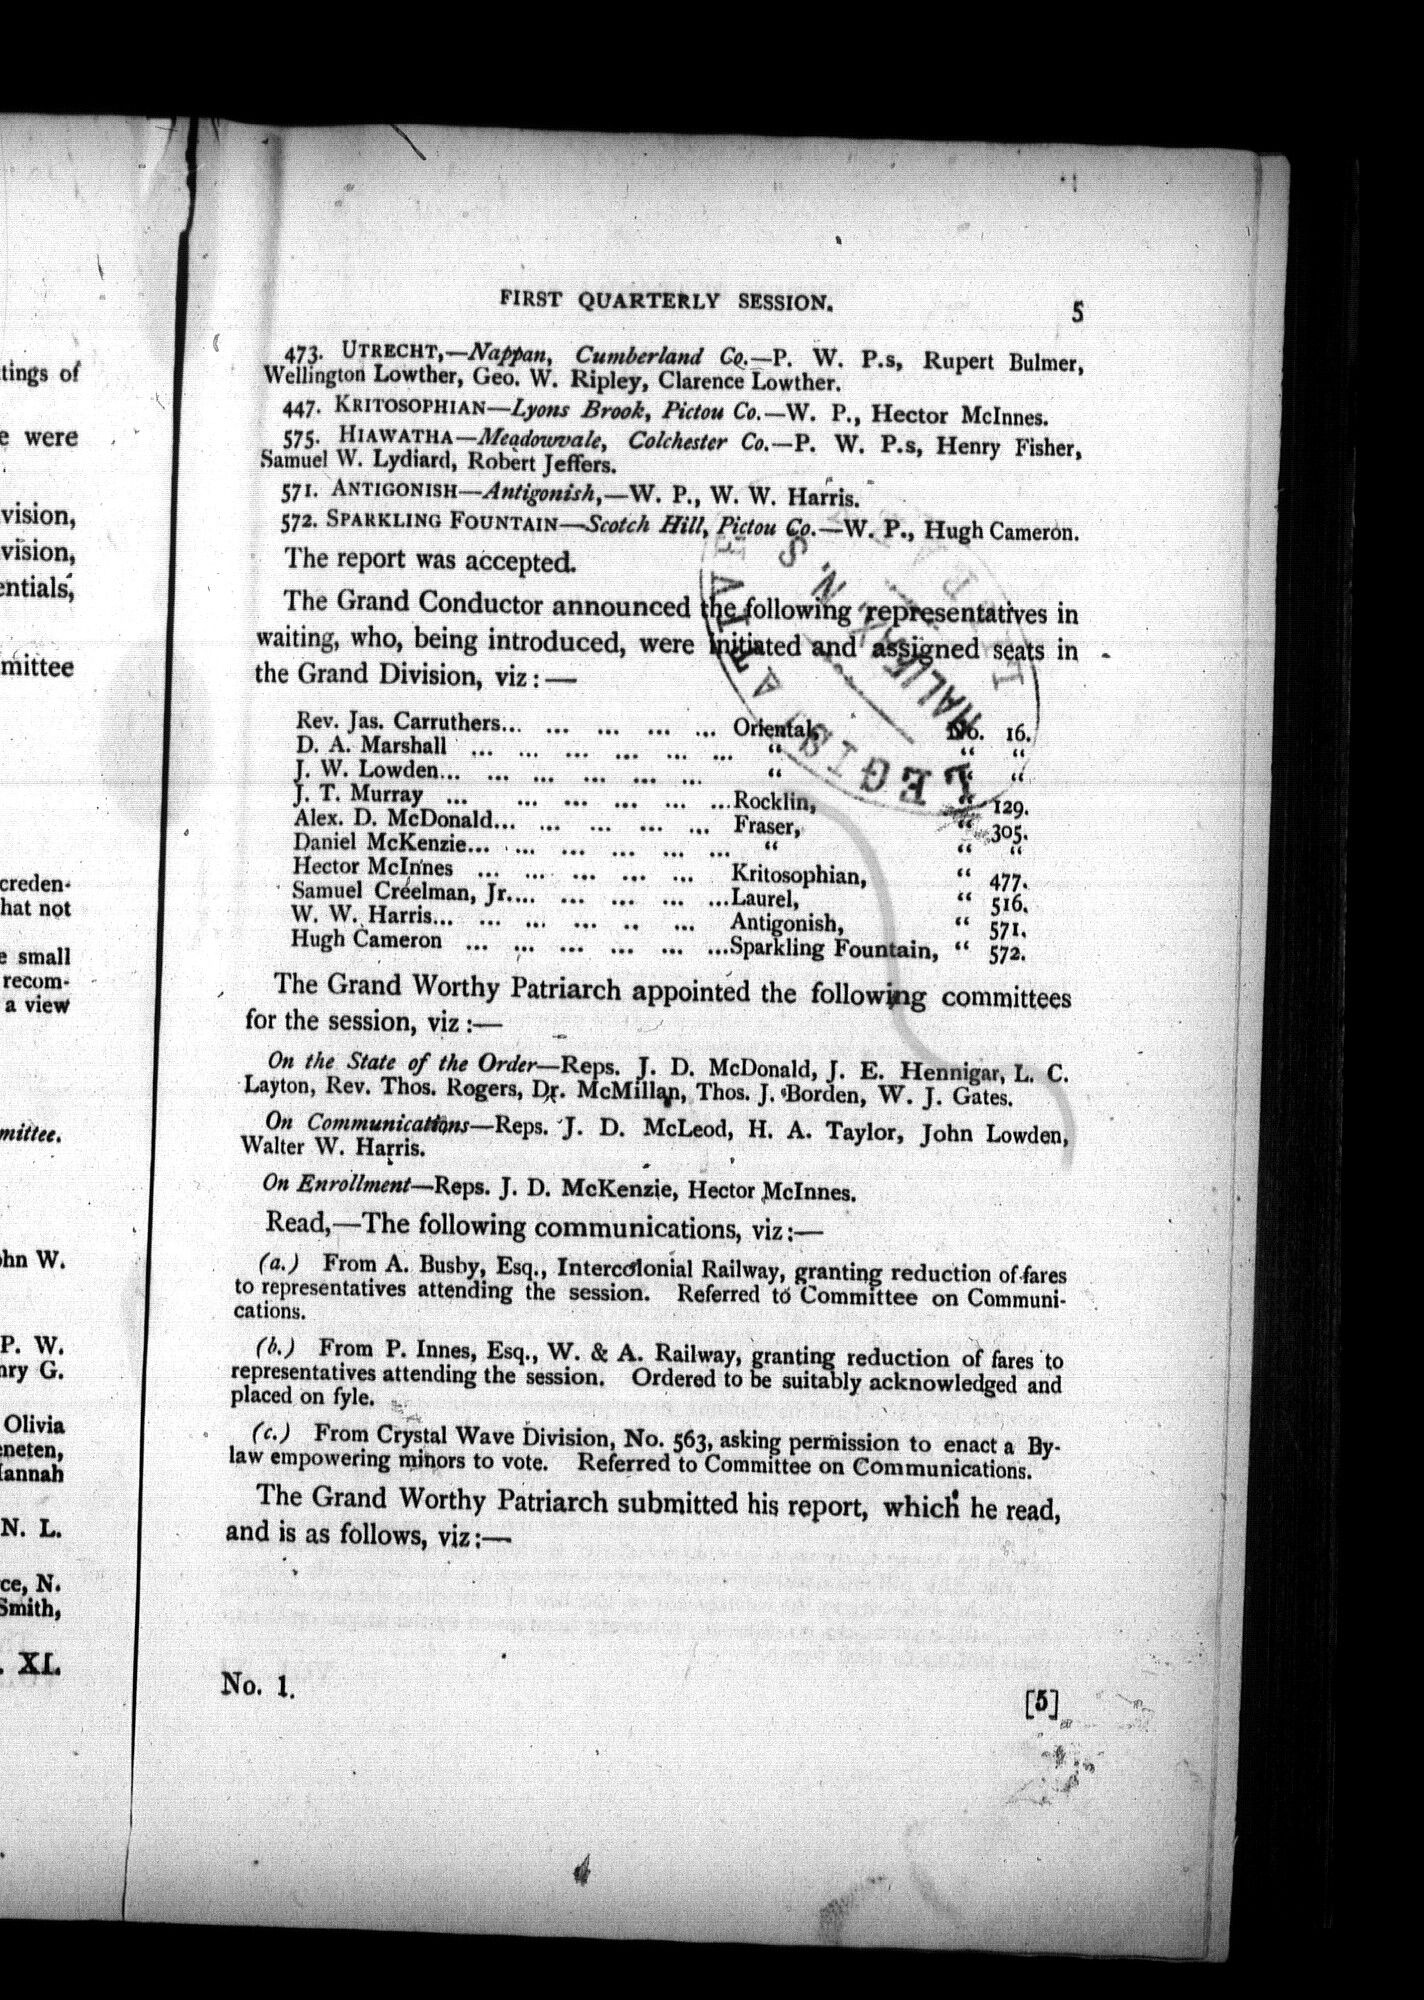 tings of
e were
vision,
vision,
entials,
mittee
creden-
hat not
e small
recom-
a view
mittee.
ohn W.
P. W.
nry G.
Olivia
eneten,
Hannah
N. L.
ce, N.
Smith,
. XI.
FIRST QUARTERLY SESSION. 5
473. UTRECHT,—Nappan, Cumberland Co.—P. W. P.s, Rupert Bulmer,
Wellington Lowther, Geo. W. Ripley, Clarence Lowther.
447. KRITOSOPHIAN—Lyons Brook, Pictou Co.—W. P., Hector McInnes.
575. HIAWATHA—Meadowvale, Colchester Co.—P. W. P.s, Henry Fisher,
Samuel W. Lydiard, Robert Jeffers.
571. ANTIGONISH—Antigonish,—W. P., W. W. Harris.
572. SPARKLING FOUNTAIN—Scotch Hill, Pictou Co.—W. P., Hugh Cameron.
The report was accepted.
The Grand Conductor announced the following representatives in
waiting, who, being introduced, were initiated and assigned seats in
the Grand Division, viz:—
Rev. Jas. Carruthers... ... ... ... ... Oriental, No. 16.
D. A. Marshall ... ... ... ... ... ... “ “ “
J. W. Lowden... ... ... ... ... ... “ “ “
J. T. Murray ... ... ... ... ... ...Rocklin, “ 129.
Alex. D. McDonald... ... ... ... ... Fraser, “ 305.
Daniel McKenzie... ... ... ... ... ... “ “ “
Hector McInnes ... ... ... ... ... Kritosophian, “ 477.
Samuel Creelman, Jr.... ... ... ... ...Laurel, “ 516.
W. W. Harris... ... ... ... .. ... Antigonish, “ 571.
Hugh Cameron ... ... ... ... ... ...Sparkling Fountain, “ 572.
The Grand Worthy Patriarch appointed the following committees
for the session, viz:—
On the State of the Order—Reps. J. D. McDonald, J. E. Hennigar, L. C.
Layton, Rev. Thos. Rogers, Dr. McMillan, Thos. J. Borden, W. J. Gates.
On Communications—Reps. J. D. McLeod, H. A. Taylor, John Lowden,
Walter W. Harris.
On Enrollment—Reps. J. D. McKenzie, Hector McInnes.
Read,—The following communications, viz:—
(a.) From A. Busby, Esq., Intercolonial Railway, granting reduction of fares
to representatives attending the session. Referred to Committee on Communi-
cations.
(b.) From P. Innes, Esq., W. & A. Railway, granting reduction of fares to
representatives attending the session. Ordered to be suitably acknowledged and
placed on fyle.
(c.) From Crystal Wave Division, No. 563, asking permission to enact a By-
law empowering minors to vote. Referred to Committee on Communications.
The Grand Worthy Patriarch submitted his report, which he read,
and is as follows, viz:—
No. 1. [5]
HALIFAX, N. S